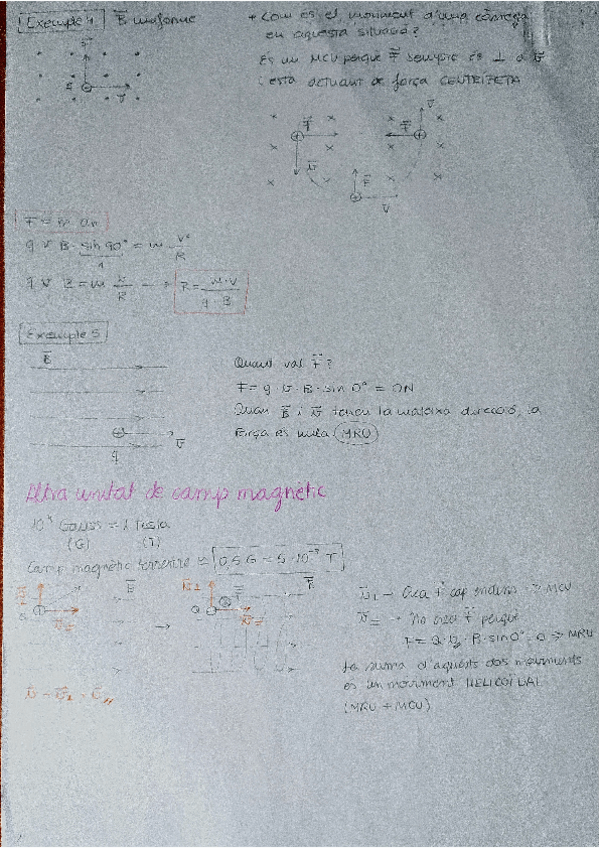 Exemple 4 B⃗ uniforme
+ Com és el moviment d'una càrrega
en aquesta situació?
És un MCU perquè F⃗ sempre és ⊥ a v⃗
i està actuant de força CENTRÍPETA
F = m · an
q v B · sin 90° = m v²/R
1
q v B = m v²/R → R = m·v / q·B
Exemple 5
B⃗
Quant val F⃗?
F = q · v · B · sin 0° = 0N
Quan B⃗ i v⃗ tenen la mateixa direcció, la
força és nul·la (MRU)
v⃗
q
Altra unitat de camp magnètic
10⁴ Gauss = 1 Tesla
(G) (T)
Camp magnètic terrestre ≈ 0,5 G = 5 · 10⁻⁵ T
v⃗⊥ → Crea F⃗ cap endins → MCU
v⃗= → No crea F⃗ perquè
F = Q · v · B · sin 0° = 0 → MRU
La suma d'aquests dos moviments
és un moviment HELICOÏDAL
(MRU + MCU)